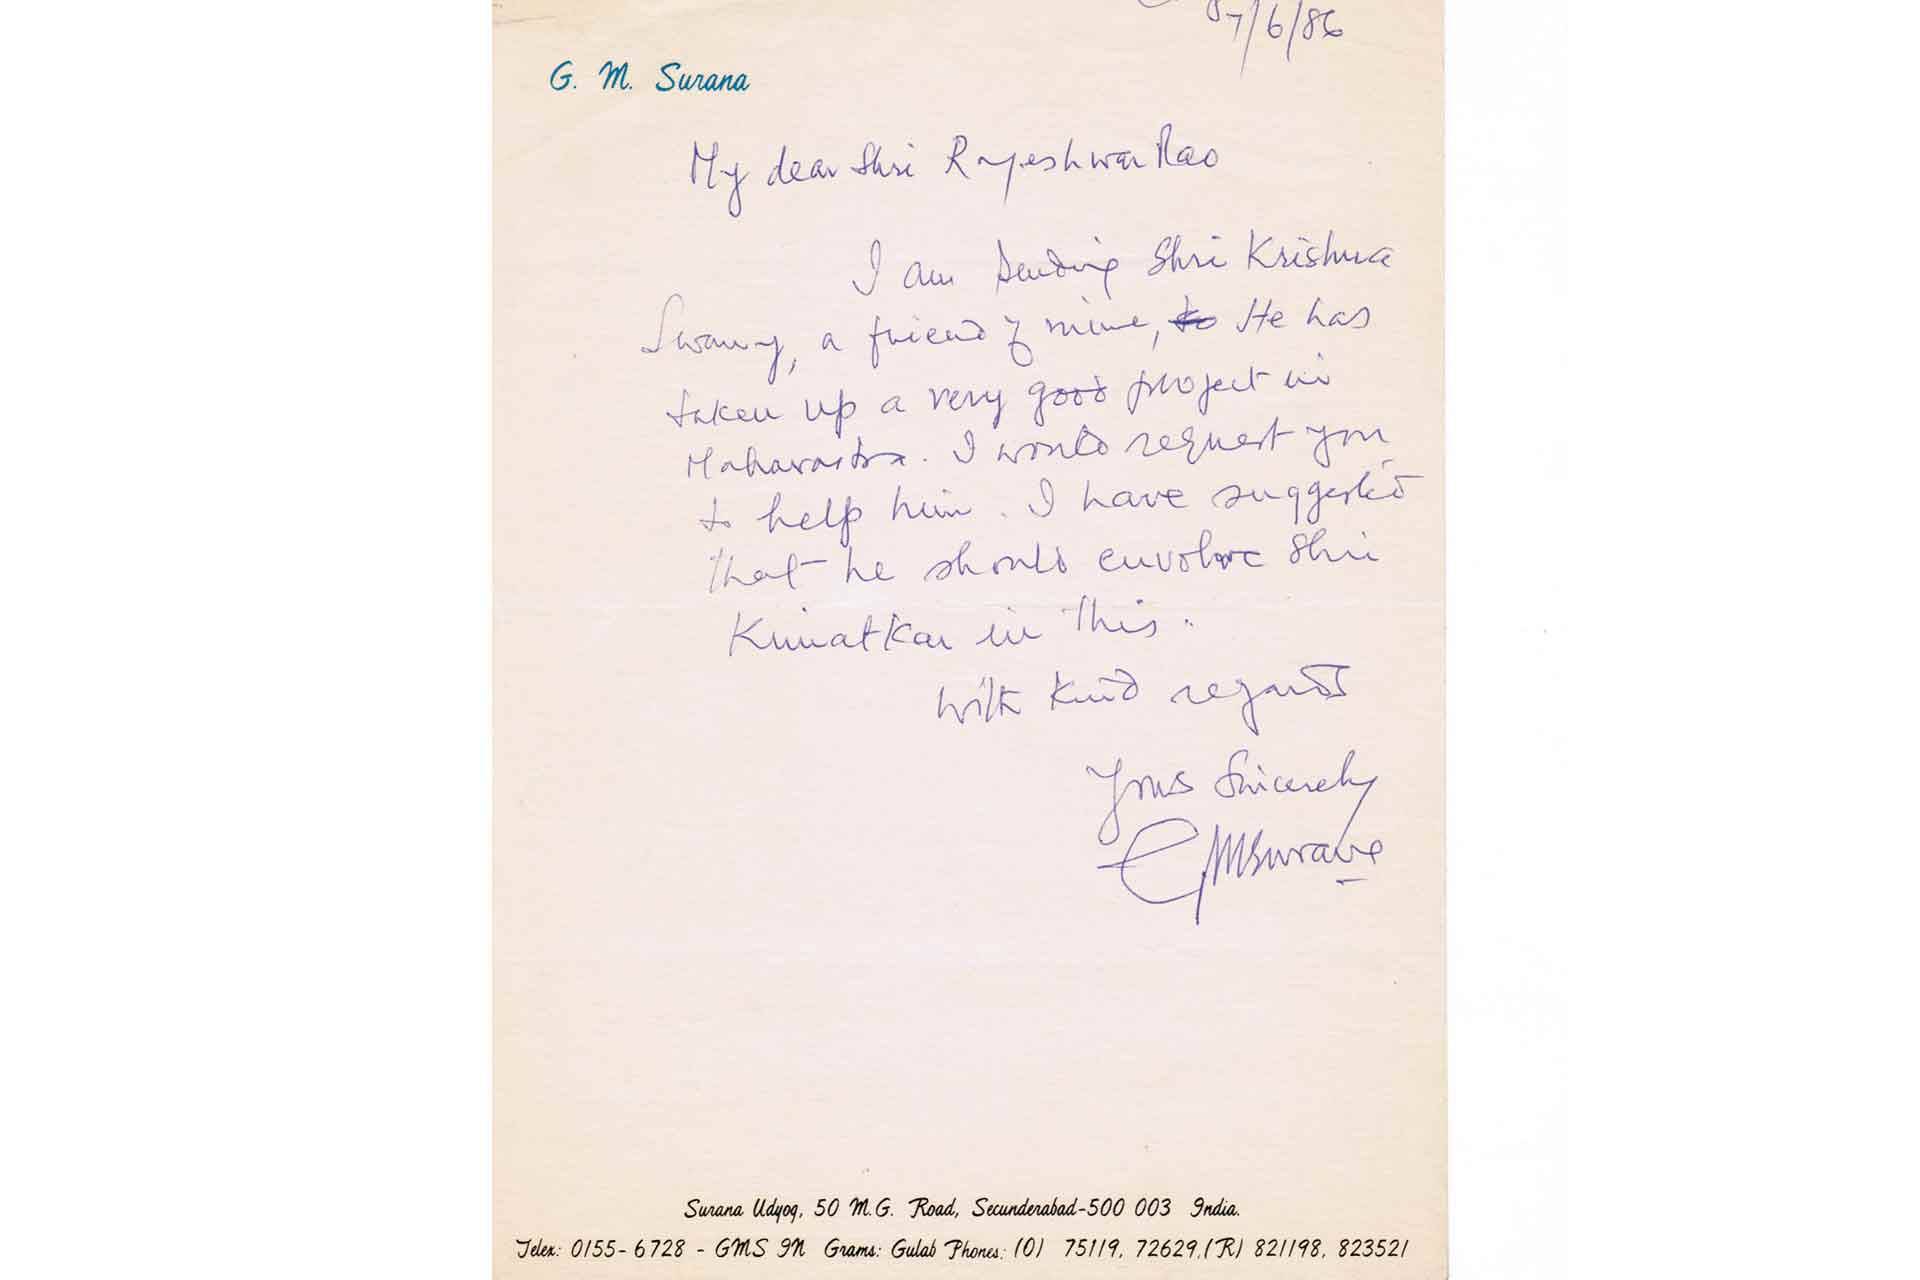 7/6/86
G. M. Surana
My dear Shri Rajeshwar Rao
I am sending Shri Krishna
Swamy, a friend of mine, to He has
taken up a very good project in
Maharastra. I would request you
to help him. I have suggested
that he should envolve Shri
Kinatkar in this.
With kind regards
Yours Sincerely
GMSurana
Surana Udyog, 50 M.G. Road, Secunderabad-500 003 India.
Telex: 0155-6728 - GMS IN Grams: Gulab Phones: (O) 75119, 72629, (R) 821198, 823521